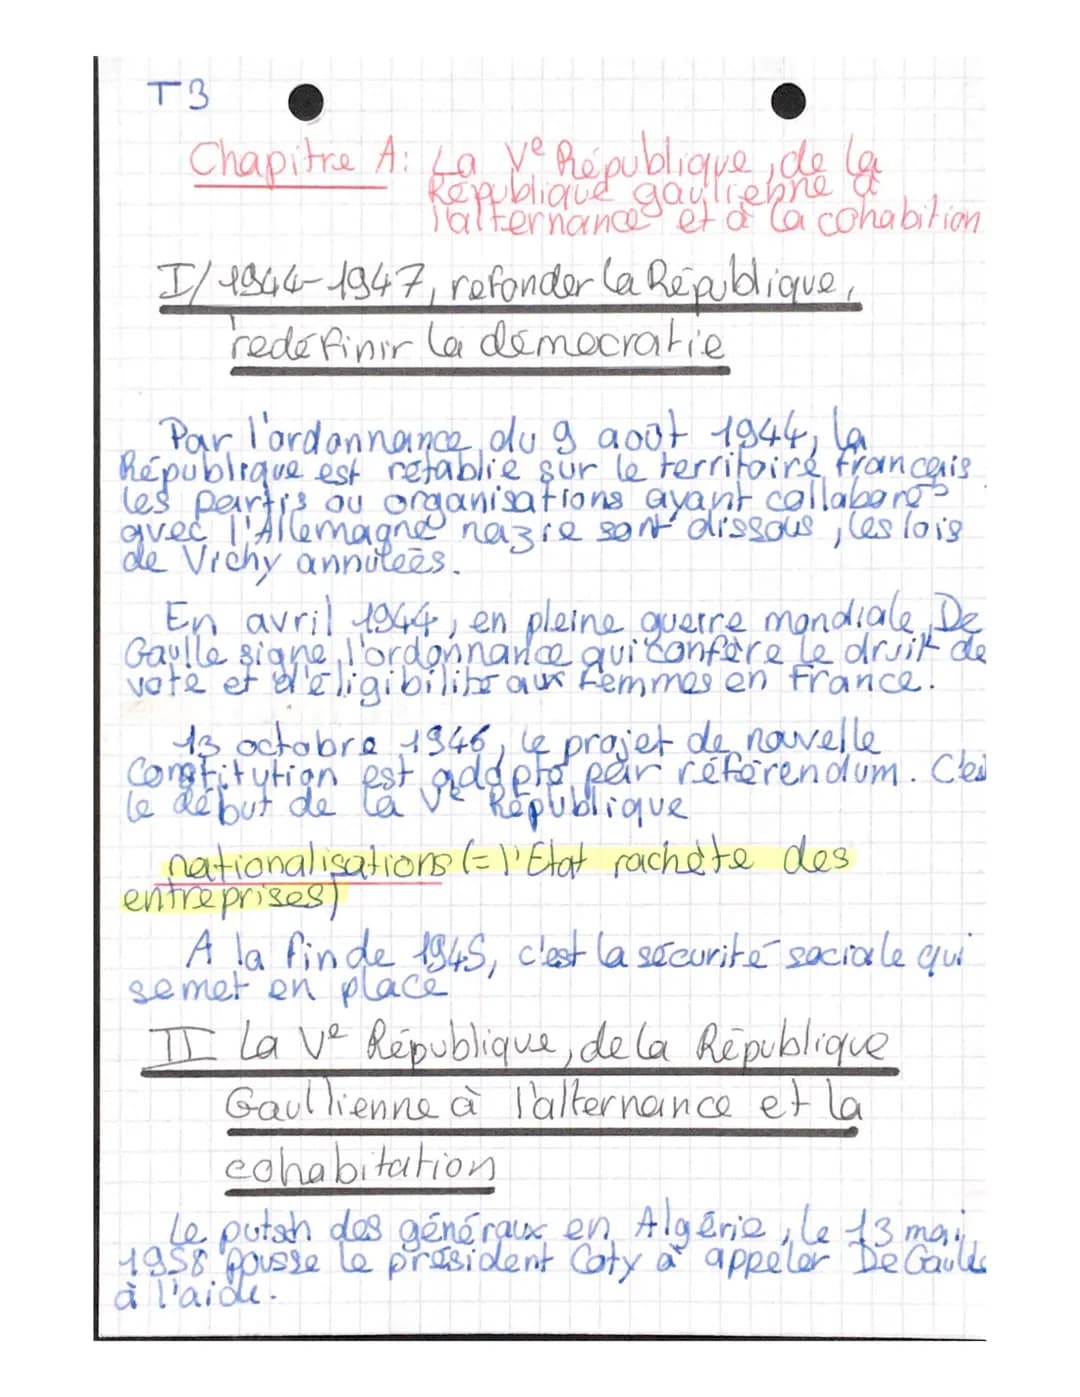 T3
Chapitre A: La Ve République, de la
République gaullienne à
l'alternance et à la cohabition
I/ 1944-1947, refonder la République,
redéfinir la démocratie
Par l'ordonnance du 9 août 1944, la
République est rétablie sur le territoire français
les partis ou organisations ayant collaboré
avec l'Allemagne nazie sont dissous, les lois
de Vichy annulées.
En avril 1944, en pleine guerre mondiale, De
Gaulle signe l'ordonnance qui confère le droit de
vote et d'éligibilité aux femmes en France.
13 octobre 1946, le projet de nouvelle
Constitution est adopté par référendum. C'es
le début de la Ve République
nationalisations (= l'Etat rachète des
entreprises)
A la fin de 1945, c'est la sécurité sociale qui
se met en place
II La Ve République, de la République
Gaullienne à l'alternance et la
cohabitation
Le putsh des généraux en Algérie, le 13 mai
1958 pousse le président Coty à appeler De Gaulle
à l'aide.